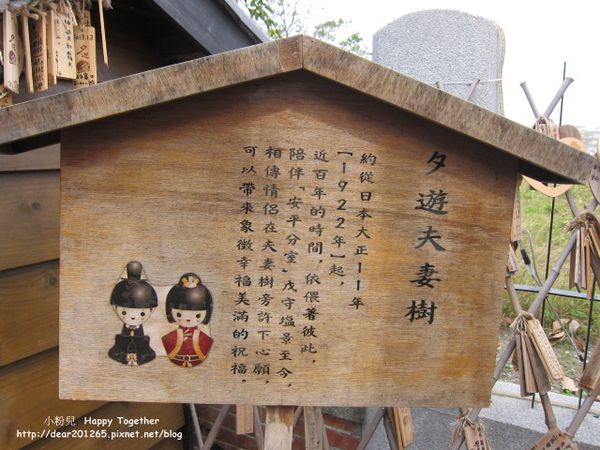 夕遊夫妻樹
約從日本大正11年
【1922年】起,
近百年的時間,依偎著彼此,
陪伴「安平分室」戍守塩景至今,
相傳情侶在夫妻樹旁許下心願,
可以帶來象徵幸福美滿的祝福。
小粉兒 Happy Together
http://dear201265.pixnet.net/blog